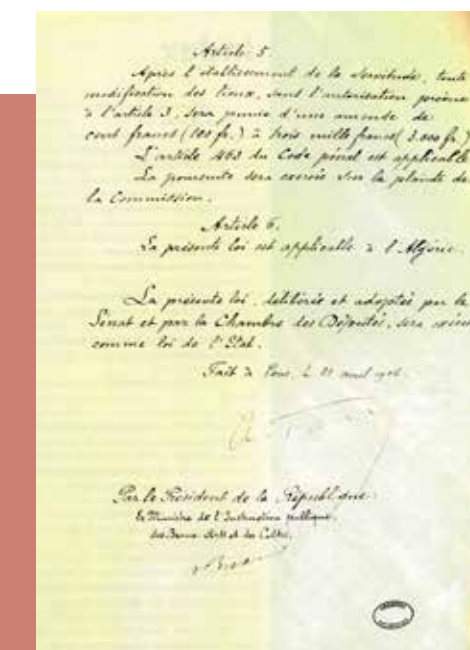 Article 5
Après l'établissement de la servitude, toute
modification des lieux, sans l'autorisation prévue
à l'article 3, sera punie d'une amende de
cent francs (100 fr.) à trois mille francs (3.000 fr.)
L'article 463 du Code pénal est applicable
La poursuite sera exercée sur la plainte de
la Commission.
Article 6.
La présente loi est applicable à l'Algérie.
La présente loi, délibérée et adoptée par le
Sénat et par la Chambre des Députés, sera
comme loi de l'Etat.
Fait à Paris, le 21 avril 1906.
Par le Président de la République:
Le Ministre de l'Instruction publique,
des Beaux-Arts et des Cultes,